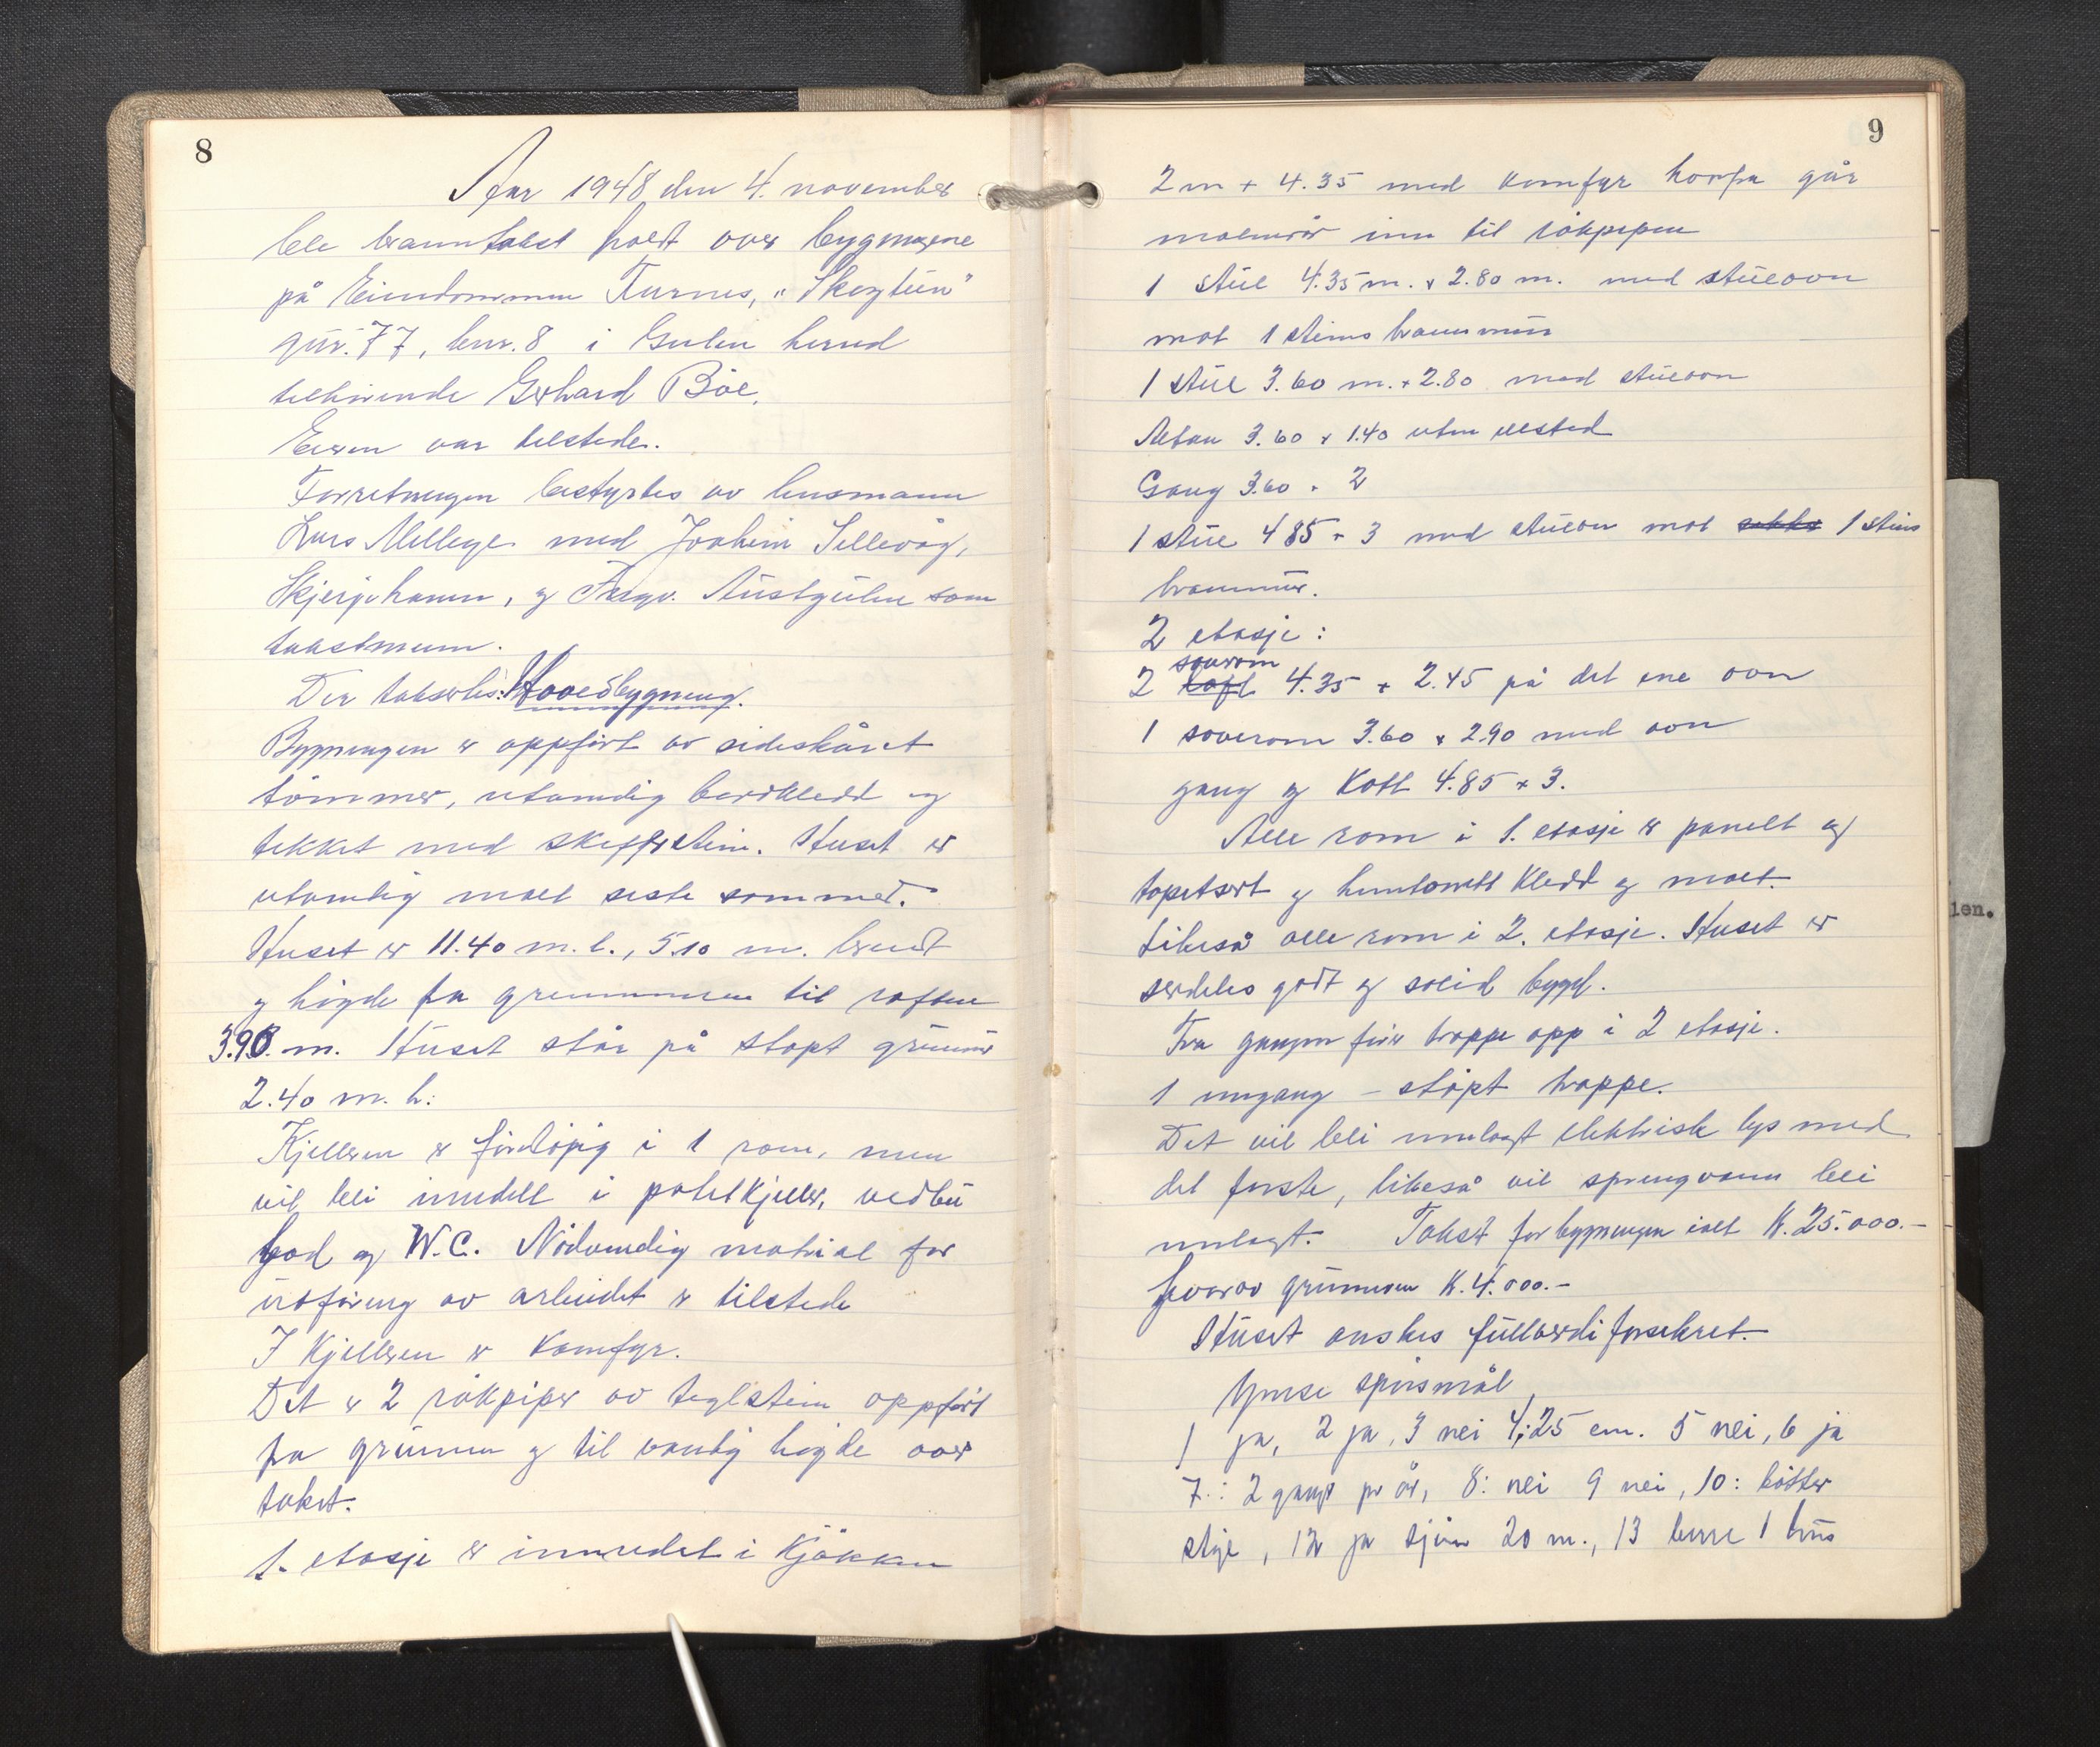 8
Aar 1948 den 4. november
ble branntakst holdt over bygningene
på Eiendommen Furnes, "Skogtun"
gnr. 77, bnr. 8 i Gulen herred
tilhørende Gerhard Böe.
Eieren var tilstede.
Forretningen bestyrtes av lensmann
Lars Mellegje med Joakim Sellevåg,
Skjerjehamn, og Austgulen som
takstmenn.
Der taksertes: Hovedbygning.
Bygningen er oppført av sideskåret
tömmer, utvendig bordkledd og
tekket med skifferstein. Huset er
utvendig malt siste sommer.
Huset er 11.40 m. l., 5.10 m. bredt
og högde fra grunnmuren til raften
3.90. m. Huset står på stöpt grunnmur
2.40 m. h.
Kjelleren er forelöpig i 1 rom, men
vil bli inndelt i potetkjeller, vedbu
bad og W.C. Nödvendig material for
utföring av arbeidet er tilstede
I Kjelleren er Komfyr.
Det er 2 rökpiper av teglstein oppfört
fra grunnen og til vanlig högde over
taket.
1. etasje er innredet i Kjökken
9
2 m x 4.35 med komfyr horfra går
rör inn til rökpipen
1 stue 4.35 m. x 2.80 m. med stueovn
mot 1 steins brannmur
1 stue 3.60 m. x 2.80 med stueovn
Altan 3.60 x 1.40 uten ildsted
Gang 3.60 x 2
1 stue 4 85 x 3 med stueovn mot 1 steins
brannmur.
2 etasje:
2 soverom 4.35 x 2.45 på det ene ovn
1 soverom 3.60 x 2.90 med ovn
gang og Kott 4.85 x 3.
Alle rom i 1. etasje er panelt og
tapetsert og huntonitt Kledd og malt.
Likeså alle rom i 2. etasje. Huset er
serdeles godt og solid bygd.
Fra gangen förer trappe opp i 2 etasje.
1 inngang – stöpt trappe.
Det vil bli innlagt elektrisk lys med
det forste, likeså vil springvann bli
innlagt. Takst for bygningen ialt K. 25.000.-
hvorav grunnmuren K. 4.000.-
Huset onskes fullverdiforsikret.
Ymse spörsmål
1 ja, 2 ja, 3 nei 4: 25 cm. 5 nei, 6 ja
7: 2 gange pr år, 8: nei 9 nei, 10: bötter
stige, 12 ja sjöen 20 m., 13 berre 1 hus
len.